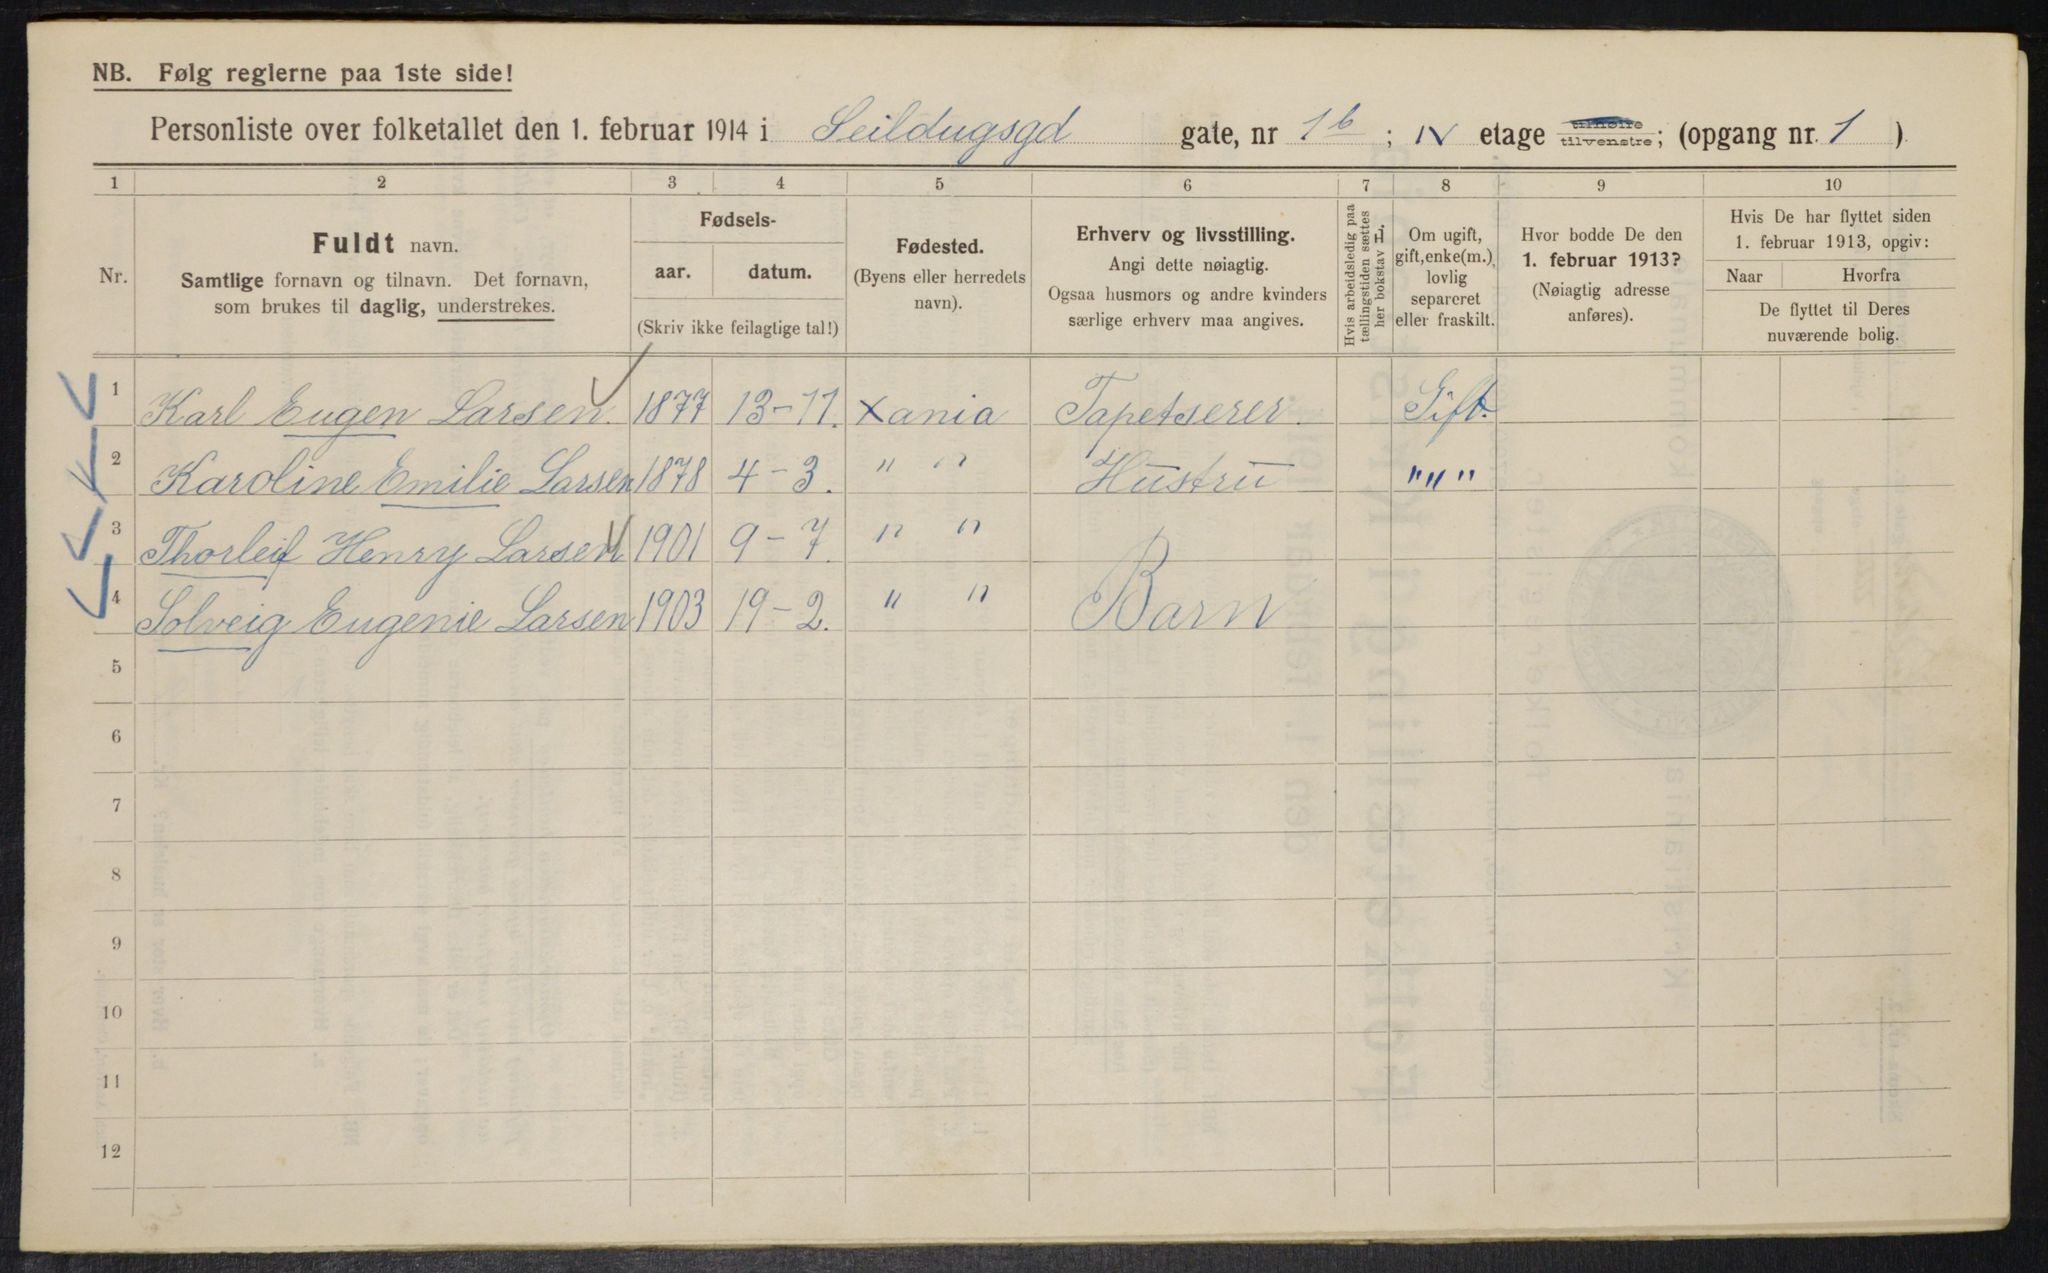 NB. Følg reglerne paa 1ste side!
Personliste over folketallet den 1. februar 1914 i Seildugsgd gate, nr 1b ; IV etage tilhøire/tilvenstre; (opgang nr. 1 ).
1 2 3 4 5 6 7 8 9 10
Nr.
Fuldt navn.
Samtlige fornavn og tilnavn. Det fornavn,
som brukes til daglig, understrekes.
Fødsels-
aar. datum.
(Skriv ikke feilagtige tal!)
Fødested.
(Byens eller herredets
navn).
Erhverv og livsstilling.
Angi dette nøiagtig.
Ogsaa husmors og andre kvinders
særlige erhverv maa angives.
Hvis arbeidsledig paa
tællingstiden sættes
her bokstav L.
Om ugift,
gift, enke(m.),
lovlig
separeret
eller fraskilt.
Hvor bodde De den
1. februar 1913?
(Nøiagtig adresse
anføres).
Hvis De har flyttet siden
1. februar 1913, opgiv:
Naar Hvorfra
De flyttet til Deres
nuværende bolig.
1 Karl Eugen Larsen. 1877 13-11. Xania Tapetserer. Gift.
2 Karoline Emilie Larsen 1878 4-3. " " Hustru " " "
3 Thorleif Henry Larsen 1901 9-7. " "
4 Solveig Eugenie Larsen 1903 19-2. " " Barn
5
6
7
8
9
10
11
12